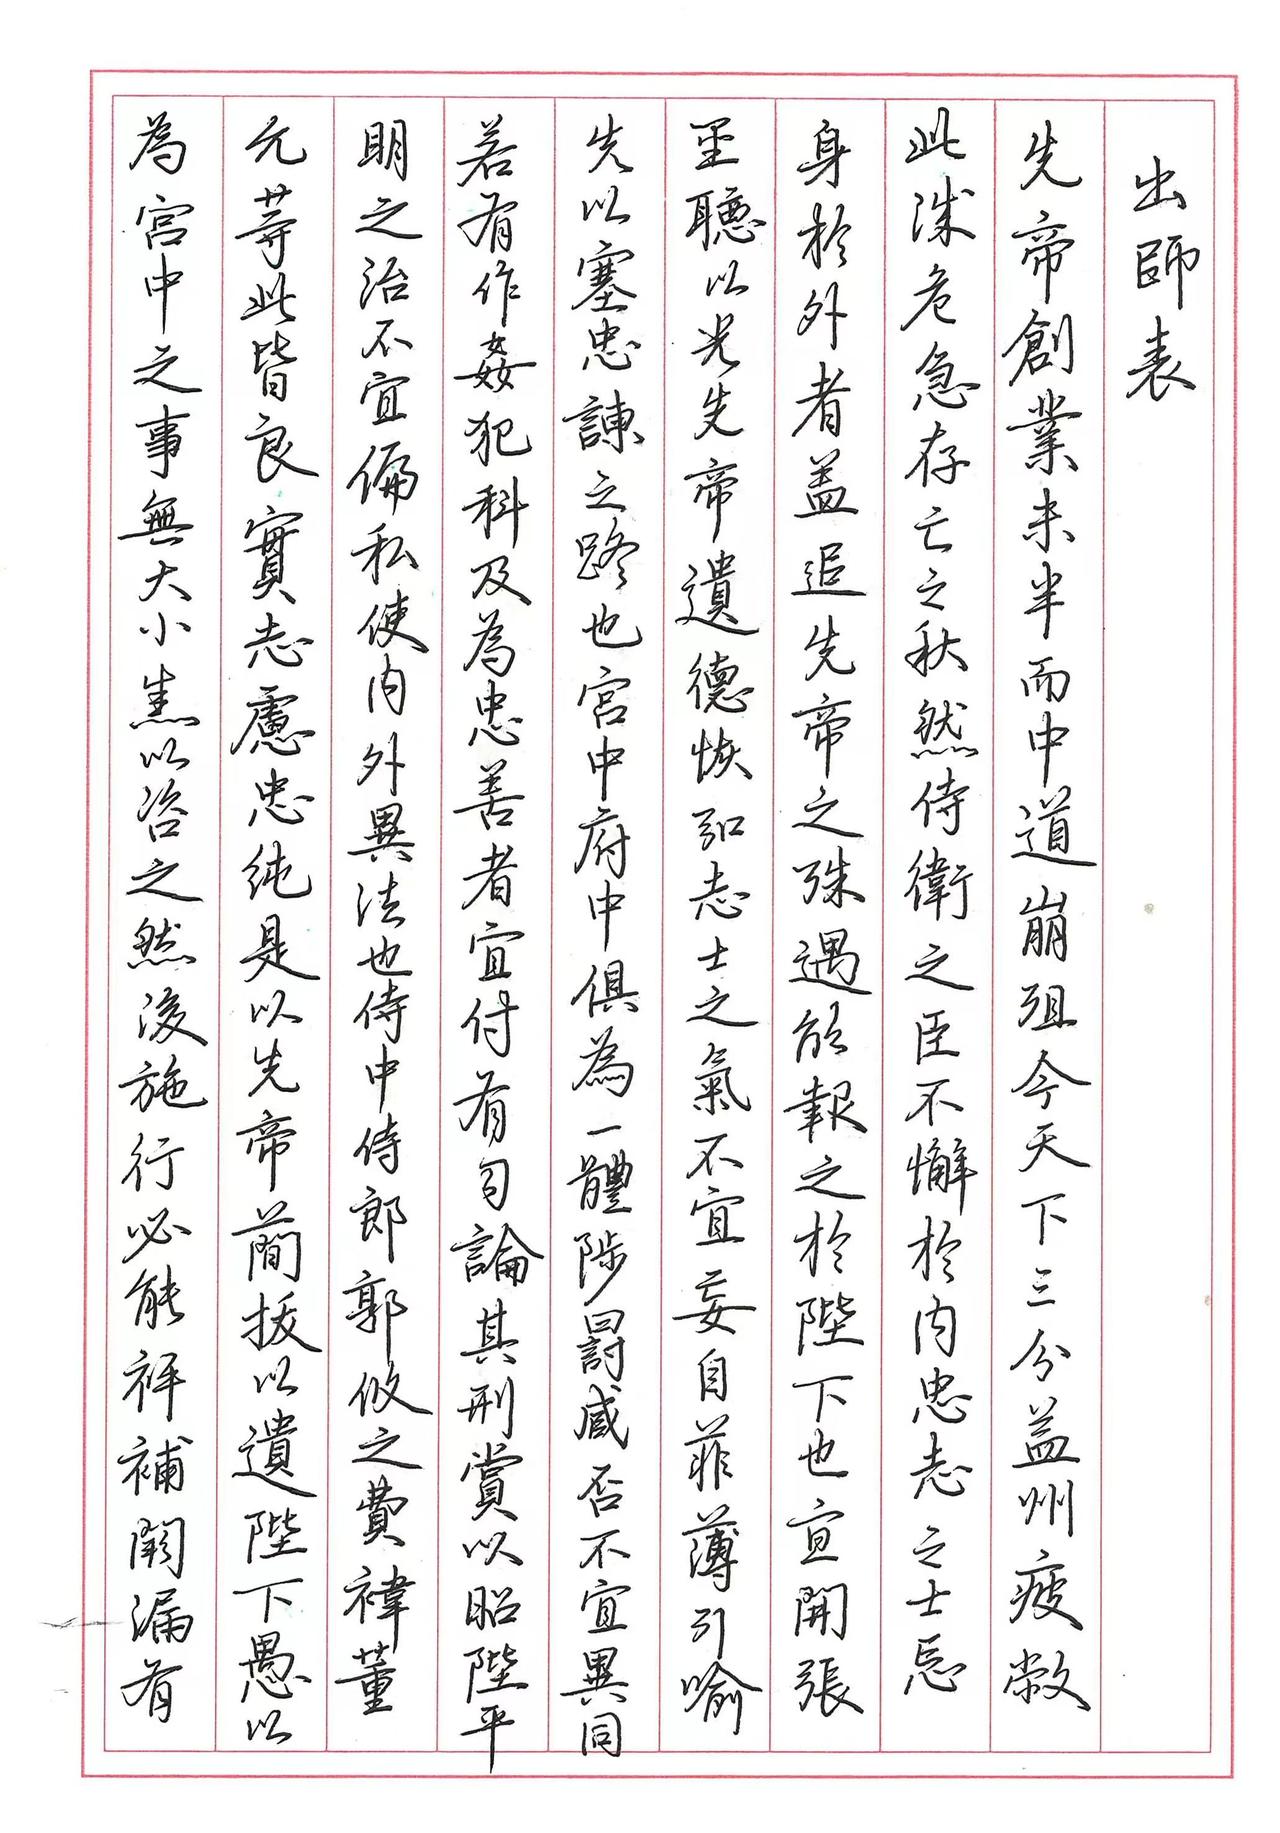 出師表
先帝創業未半而中道崩殂今天下三分益州疲敝
此誠危急存亡之秋然侍衛之臣不懈於內忠志之士忘
身於外者蓋追先帝之殊遇欲報之於陛下也宜開張
聖聽以光先帝遺德恢弘志士之氣不宜妄自菲薄引喻
失以塞忠諫之路也宮中府中俱為一體陟罰臧否不宜異同
若有作姦犯科及為忠善者宜付有司論其刑賞以昭陛平
明之治不宜偏私使內外異法也侍中侍郎郭攸之費禕董
允等此皆良實志慮忠純是以先帝簡拔以遺陛下愚以
為宮中之事無大小悉以咨之然後施行必能裨補闕漏有